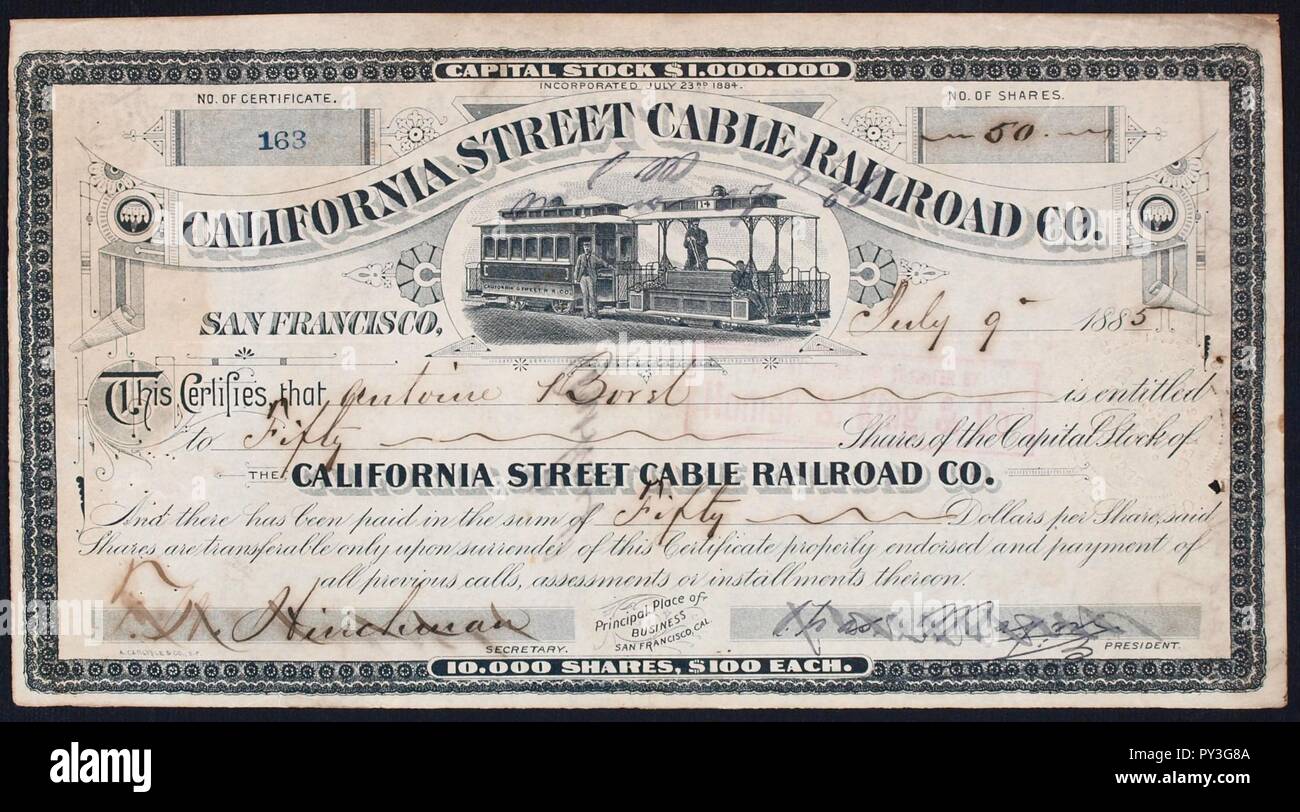 CAPITAL STOCK $1.000.000
INCORPORATED JULY 23RD 1884.
NO. OF CERTIFICATE. NO. OF SHARES.
163 50
CALIFORNIA STREET CABLE RAILROAD CO.
14
CALIFORNIA STREET R.R. CO.
SAN FRANCISCO, July 9 1885
This Certifies, that Antoine Borel is entitled
to Fifty Shares of the Capital Stock of
THE CALIFORNIA STREET CABLE RAILROAD CO.
And there has been paid in the sum of Fifty Dollars per Share, said
Shares are transferable only upon surrender of this Certificate properly endorsed and payment of
all previous calls, assessments or installments thereon.
Principal Place of
BUSINESS
SAN FRANCISCO, CAL.
Hinchman
SECRETARY. PRESIDENT.
10.000 SHARES, $100 EACH.
alamy
alamy stock photo
PY3G8A
www.alamy.com